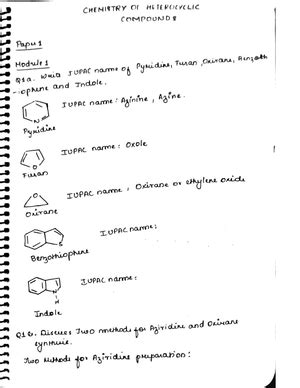 CHEMISTRY OF HETEROCYCLIC
COMPOUNDS
Paper 1
Module 1
Q1a. Write IUPAC name of Pyridine, Furan, Oxirane, Benzoth
-iophene and Indole.
IUPAC name: Azinine, Azine.
N
Pyridine
IUPAC name: Oxole
O
Furan
O
IUPAC name, Oxirane or ethylene oxide
Oxirane
IUPAC name:
S
Benzothiophene
IUPAC name:
N
H
Indole
Q1b. Discuss Two methods for Aziridine and Oxirane
synthesis.
Two Methods for Aziridine preparation: